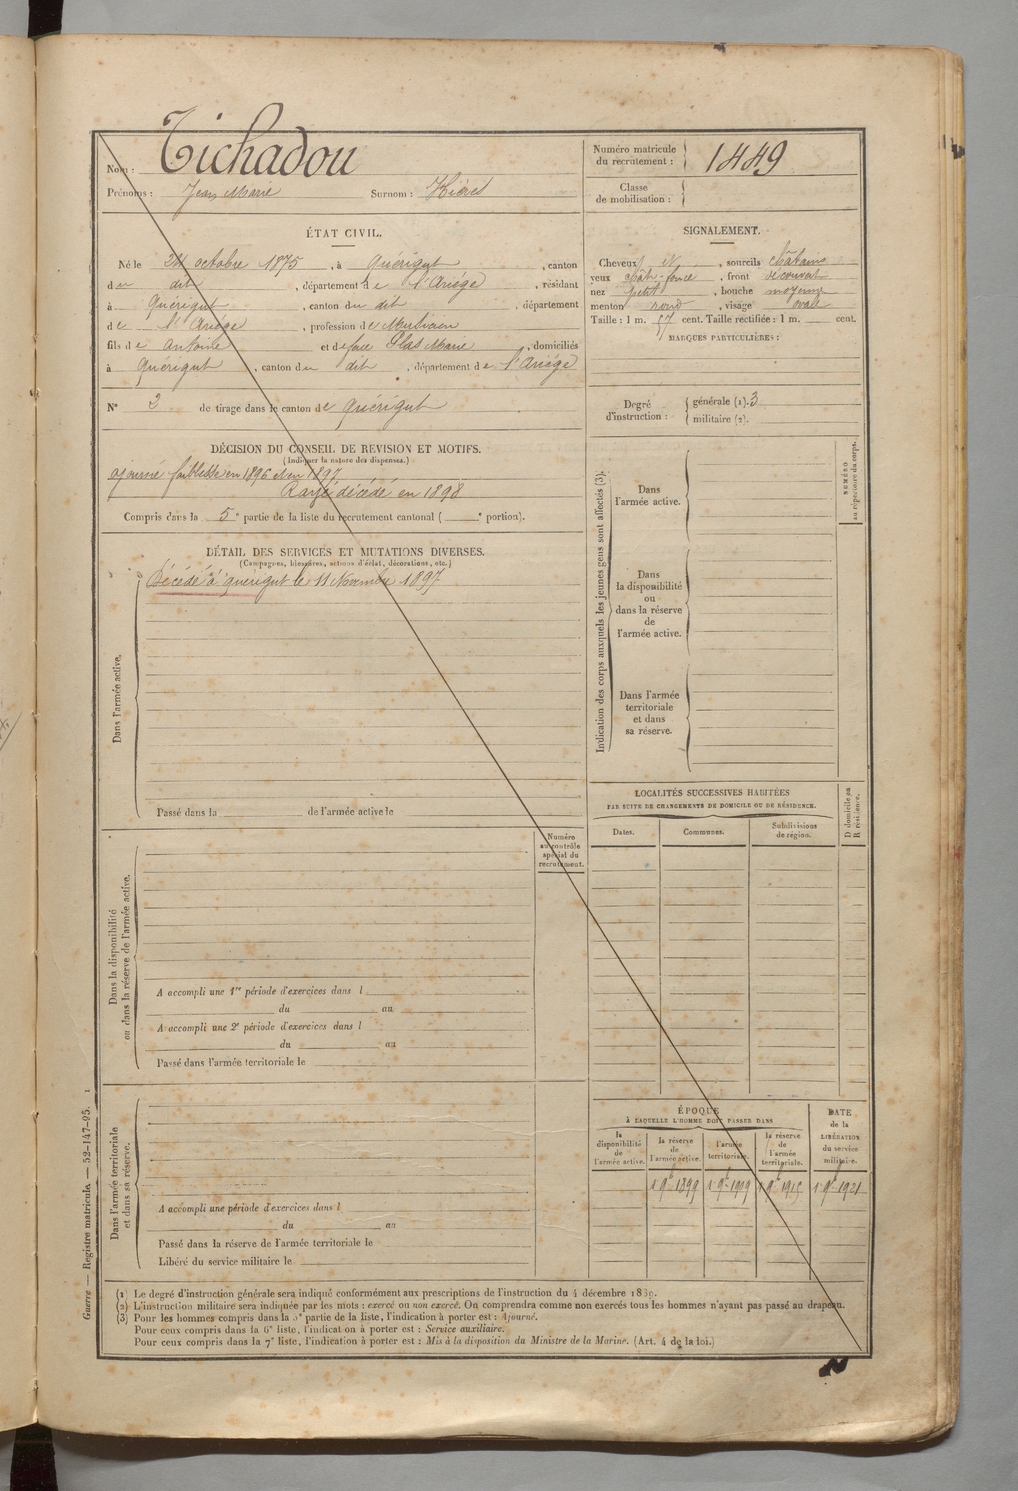 Nom : Tichadou
Prénoms : Jean Marie Surnom :
Numéro matricule du recrutement : 1449
Classe de mobilisation :
ÉTAT CIVIL.
Né le 24 octobre 1875, à Quérigut, canton
du dit, département de l'Ariége, résidant
à Quérigut, canton du dit, département
de l'Ariége, profession de Musicien
fils de Antoine et de feue Plas Marie, domiciliés
à Quérigut, canton du dit, département de l'Ariége
N° 2 de tirage dans le canton de Quérigut
SIGNALEMENT.
Cheveux N, sourcils châtains
yeux chât. foncé, front découvert
nez petit, bouche moyenne
menton rond, visage ovale
Taille : 1 m. 57 cent. Taille rectifiée : 1 m. cent.
MARQUES PARTICULIÈRES :
Degré d'instruction : générale (1). 3
militaire (2).
DÉCISION DU CONSEIL DE REVISION ET MOTIFS.
(Indiquer la nature des dispenses.)
ajourné faiblesse en 1896 et en 1897
Rayé décédé en 1898
Compris dans la 5e partie de la liste du recrutement cantonal ( e portion).
DÉTAIL DES SERVICES ET MUTATIONS DIVERSES.
(Campagnes, blessures, actions d'éclat, décorations, etc.)
Décédé à Quérigut le 11 Novembre 1897
Dans l'armée active.
Passé dans la de l'armée active le
Indication des corps auxquels les jeunes gens sont affectés (3).
NUMÉRO au répertoire du corps.
Dans l'armée active.
Dans la disponibilité ou dans la réserve de l'armée active.
Dans l'armée territoriale et dans sa réserve.
LOCALITÉS SUCCESSIVES HABITÉES
PAR SUITE DE CHANGEMENTS DE DOMICILE OU DE RÉSIDENCE.
Dates. Communes. Subdivisions de région. D domicile ou R résidence.
Numéro au contrôle spécial du recrutement.
Dans la disponibilité ou dans la réserve de l'armée active.
A accompli une 1re période d'exercices dans l
du au
A accompli une 2e période d'exercices dans l
du au
Passé dans l'armée territoriale le
Dans l'armée territoriale et dans sa réserve.
A accompli une période d'exercices dans l
du au
Passé dans la réserve de l'armée territoriale le
Libéré du service militaire le
ÉPOQUE
À LAQUELLE L'HOMME DOIT PASSER DANS
la disponibilité de l'armée active.
la réserve de l'armée active.
l'armée territoriale.
la réserve de l'armée territoriale.
DATE de la LIBÉRATION du service militaire.
1 9bre 1899 1 9bre 1909 1 9bre 1915 1 9bre 1921
Guerre — Registre matricule. — 52-147-95. 1
(1) Le degré d'instruction générale sera indiqué conformément aux prescriptions de l'instruction du 4 décembre 1889.
(2) L'instruction militaire sera indiquée par les mots : exercé ou non exercé. On comprendra comme non exercés tous les hommes n'ayant pas passé au drapeau.
(3) Pour les hommes compris dans la 5e partie de la liste, l'indication à porter est : Ajourné.
Pour ceux compris dans la 6e liste, l'indication à porter est : Service auxiliaire.
Pour ceux compris dans la 7e liste, l'indication à porter est : Mis à la disposition du Ministre de la Marine. (Art. 4 de la loi.)